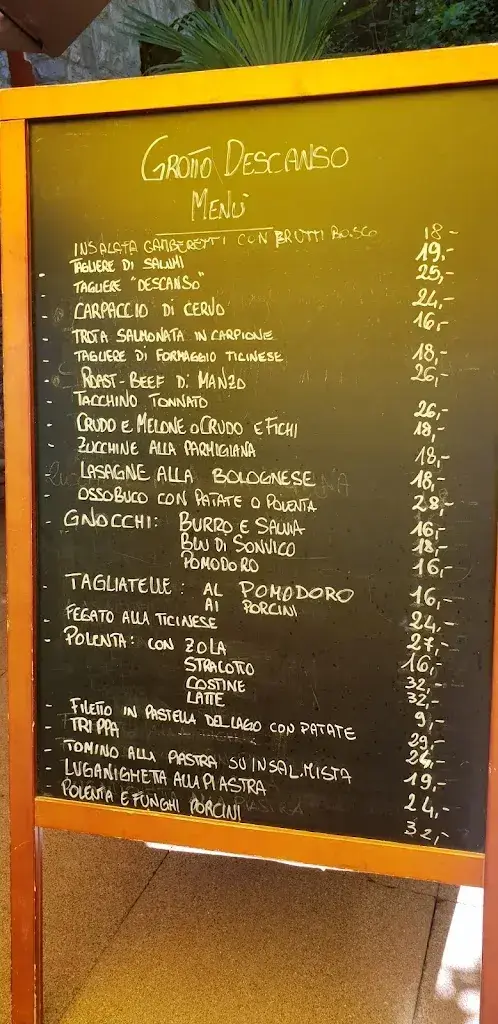 GROTTO DESCANSO
MENU
INSALATA GAMBERETTI CON BRUTTI BOSCO 18-
- TAGLIERE DI SALUMI 19,-
- TAGLIERE "DESCANSO" 25,-
- CARPACCIO DI CERVO 24,-
- TROTA SALMONATA IN CARPIONE 16,-
- TAGLIERE DI FORMAGGIO TICINESE 18,-
- ROAST-BEEF DI MANZO 26,-
- TACCHINO TONNATO 26,-
- CRUDO E MELONE O CRUDO E FICHI 18,-
- ZUCCHINE ALLA PARMIGIANA 18,-
- LASAGNE ALLA BOLOGNESE 18,-
- OSSOBUCO CON PATATE O POLENTA 28,-
- GNOCCHI: BURRO E SALVIA 16,-
BLU DI SONVICO 18,-
POMODORO 16,-
- TAGLIATELLE: AL POMODORO 16,-
AI PORCINI 24,-
- FEGATO ALLA TICINESE 27,-
- POLENTA: CON ZOLA 16,-
STRACOTTO 32,-
COSTINE 32,-
LATTE 9,-
- FILETTO IN PASTELLA DEL LAGO CON PATATE 29,-
- TRIPPA 24,-
- TOMINO ALLA PIASTRA SU INSAL.MISTA 19,-
- LUGANIGHETTA ALLA PIASTRA 24,-
- POLENTA E FUNGHI PORCINI 32,-